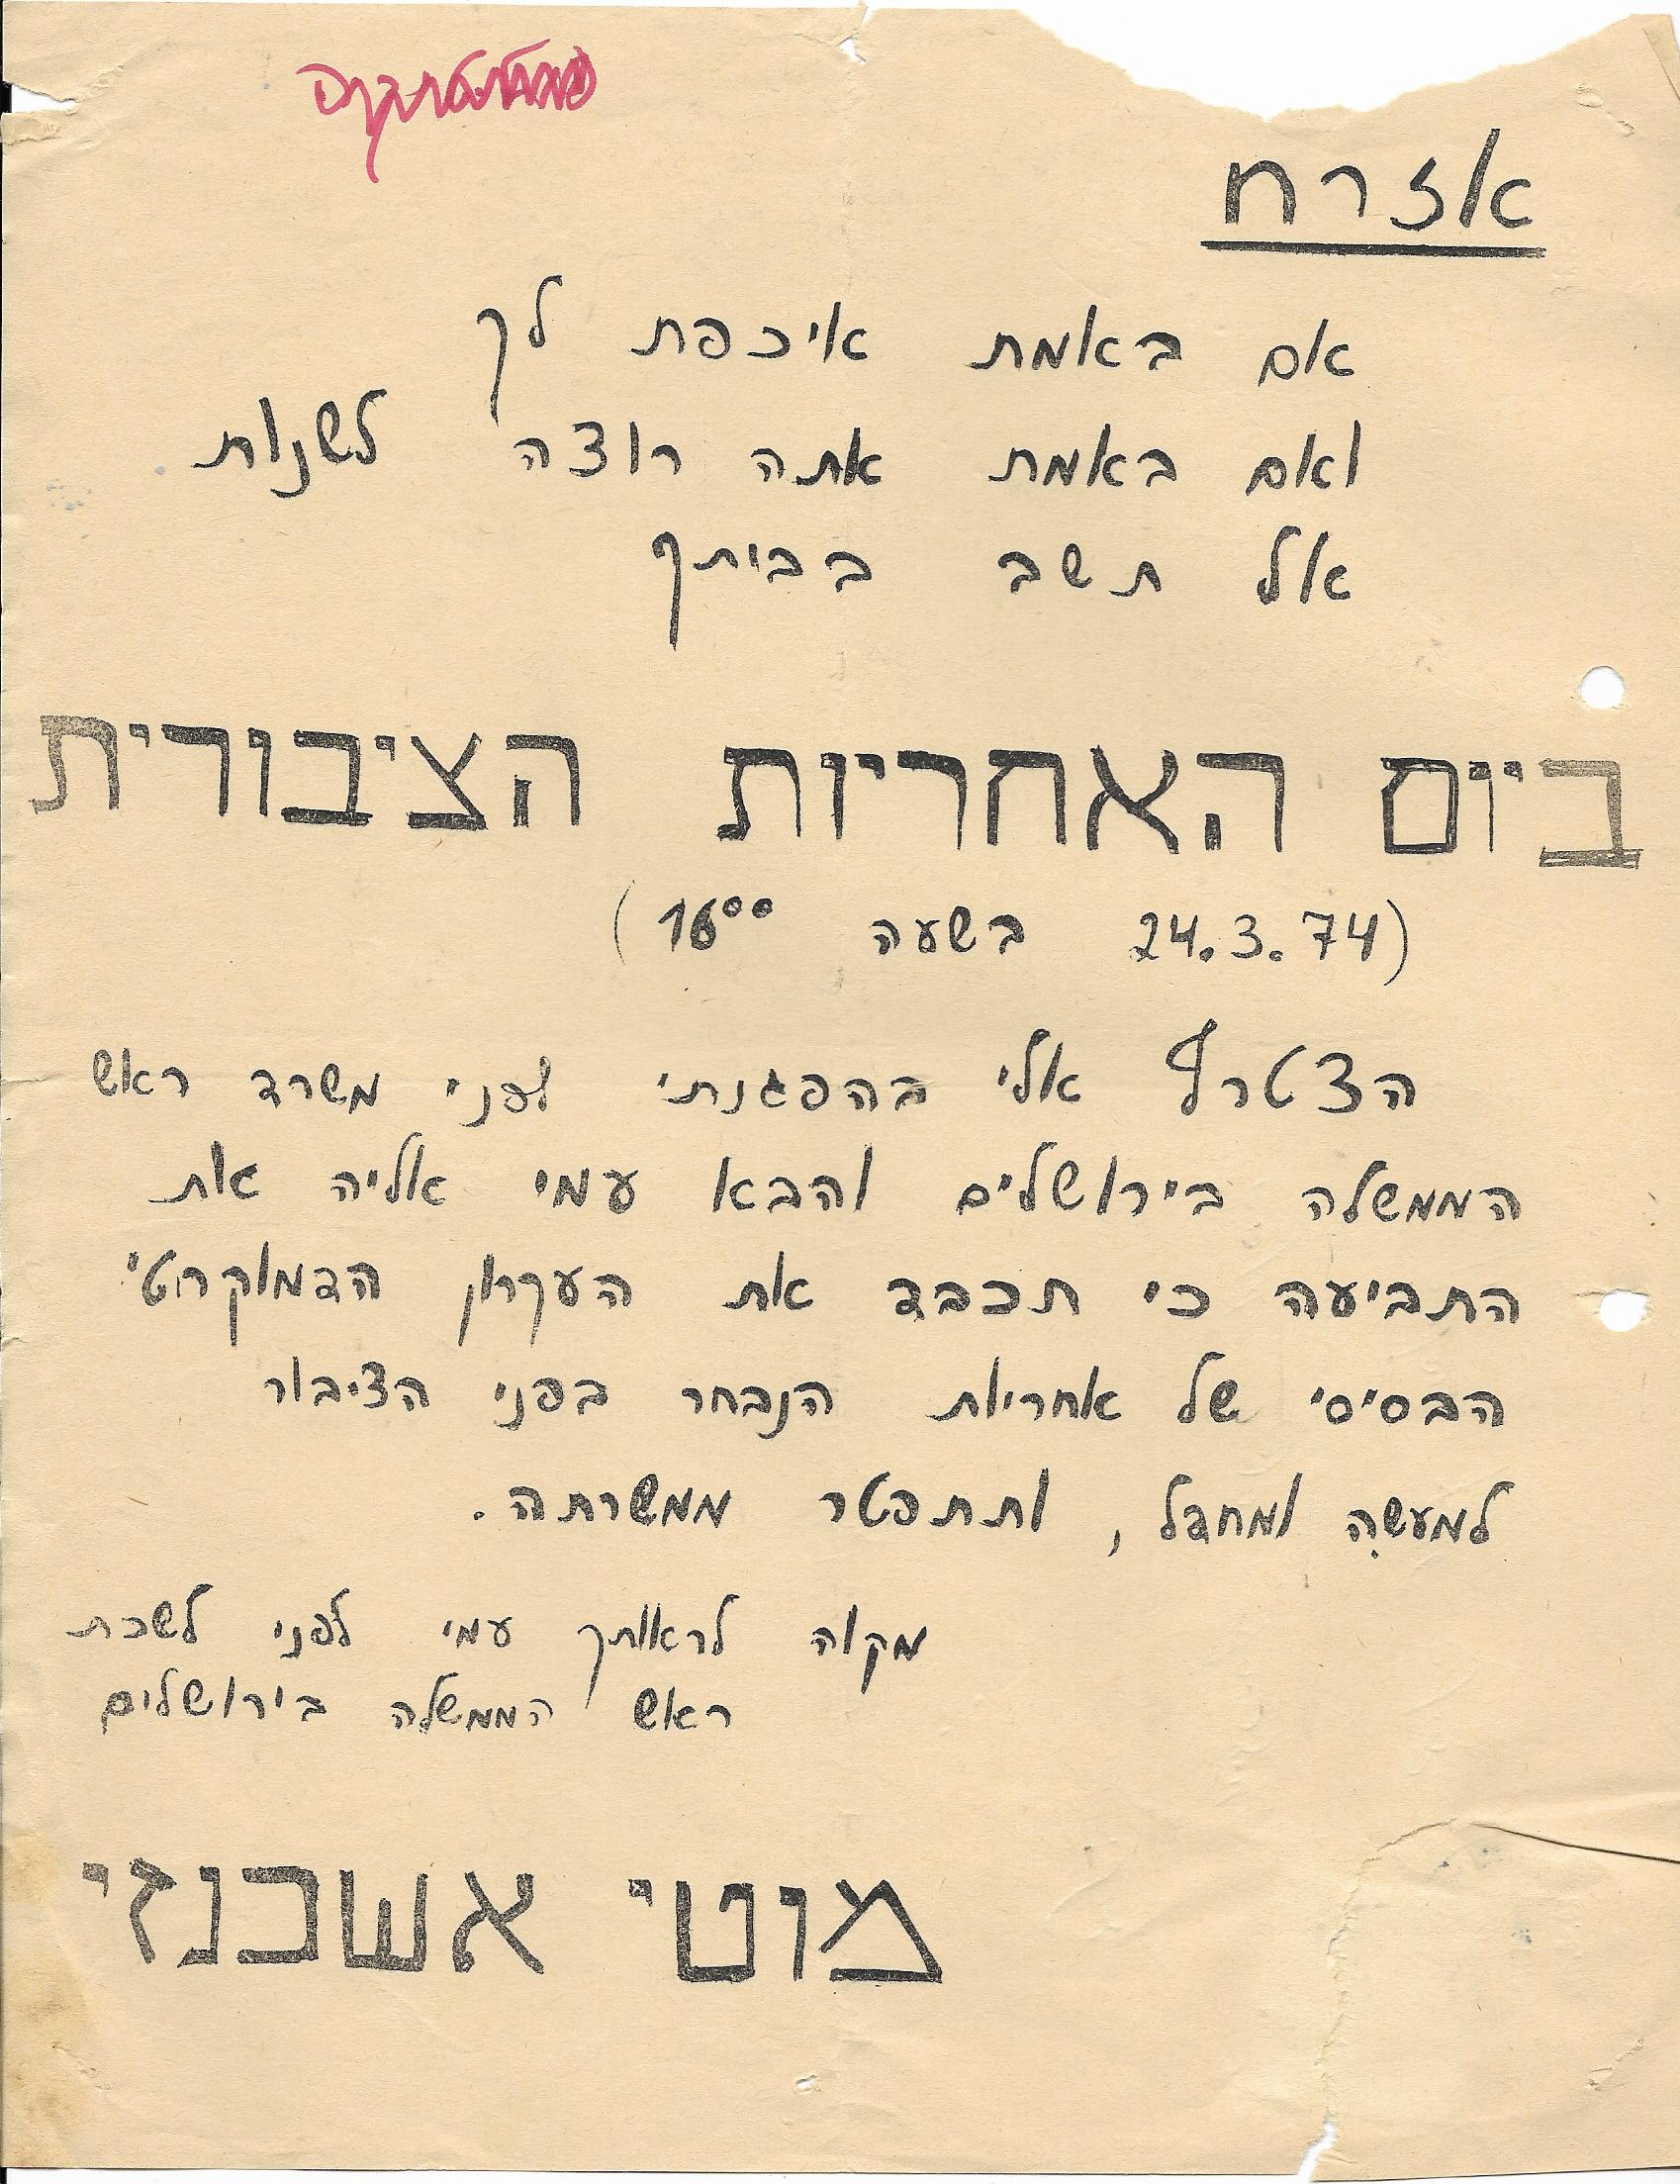 אזרח
אם באמת איכפת לך
ואם באמת אתה רוצה לשנות
אל תשב בביתך
ביום האחריות הציבורית
(24.3.74 בשעה 16⁰⁰)
הצטרף אלי בהפגנתי לפני משרד ראש
הממשלה בירושלים והבא עמי אליה את
התביעה כי תכבד את העקרון הדמוקרטי
הבסיסי של אחריות הנבחר בפני הציבור
למעשה ומחדל, ותתפטר ממשרתה.
מקוה לראותך עמי לפני לשכת
ראש הממשלה בירושלים
מוטי אשכנזי